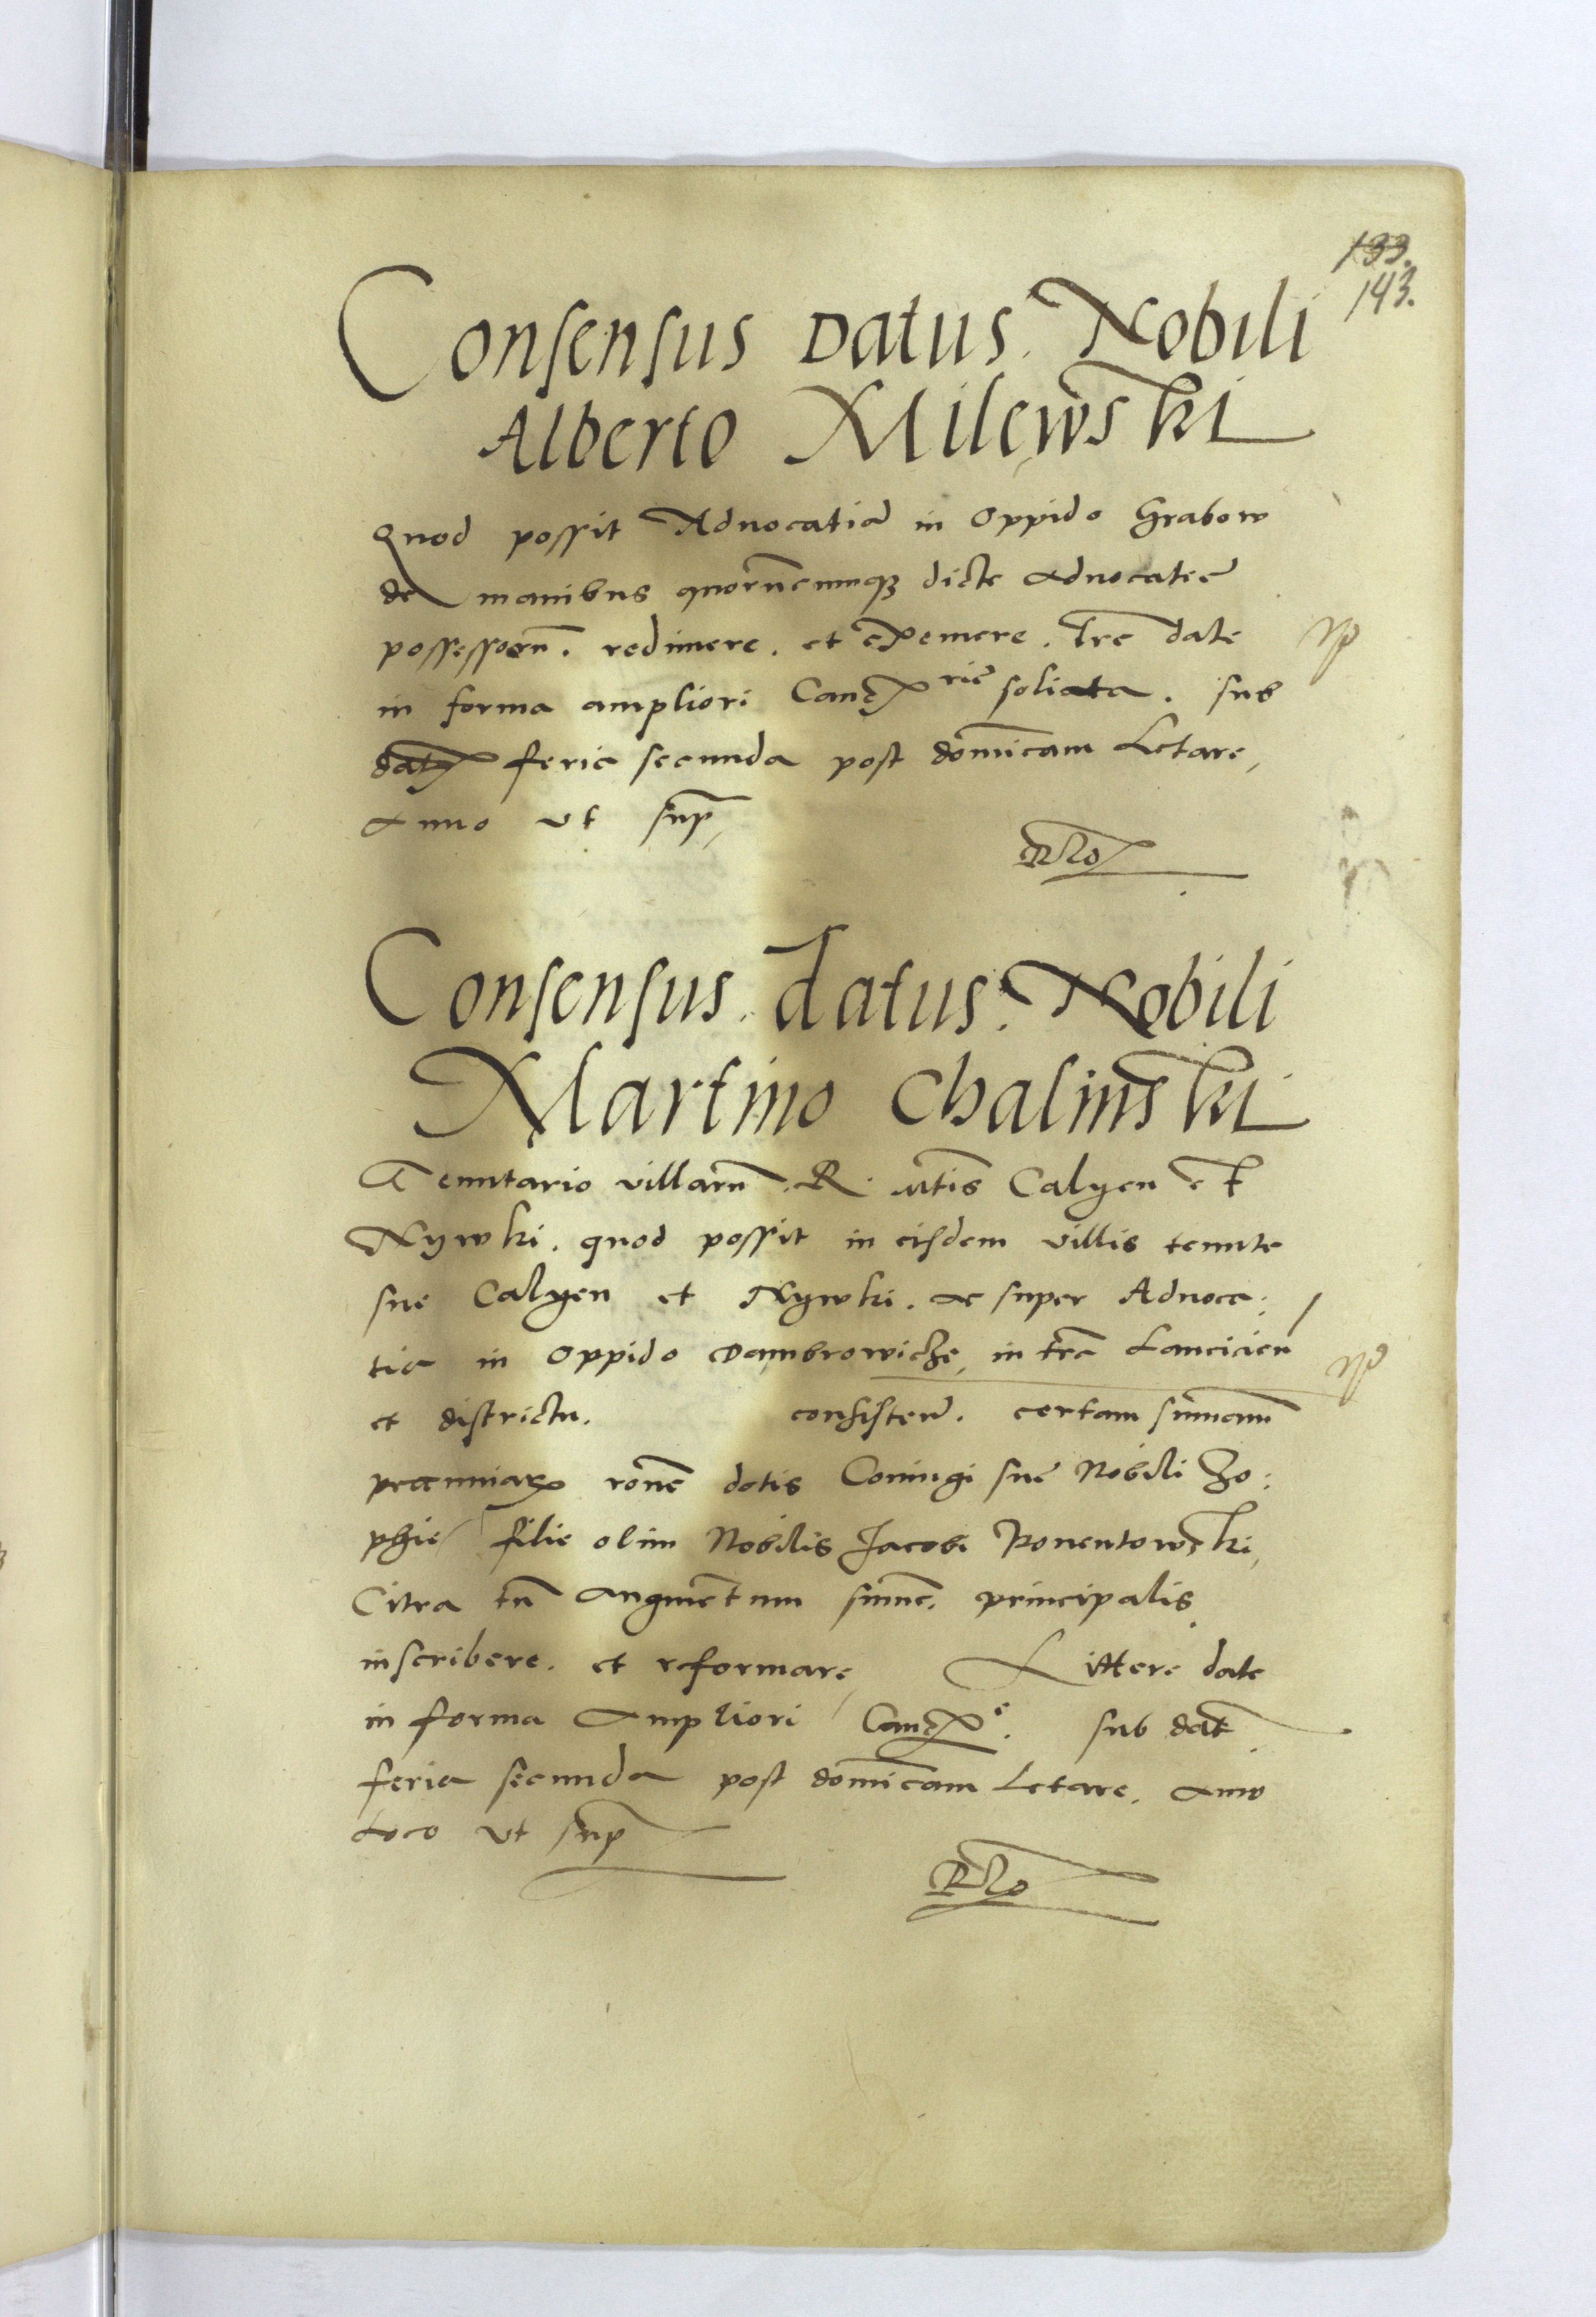 133.
143.
Consensus Datus. Nobili
Alberto Milewski
Quod possit Advocatiā in Oppido Grabow
de manibus quorūcumqꝫ dicte Advocatie
possessorū. redimere. et eximere. Lrē date
in forma ampliori Canꝝ rie solicita. sub
datꝝ feria secunda post domīcam Letare,
Anno ut sup̄,
Consensus. datus. Nobili
Martino Chalinski
Tenutario villarū. R. Mtīs Calyen et
Nywki. quod possit in eisdem villis tenute
sue Calyen et Nywki. ac super Advoca:
tia in Oppido Dambrowicze, in trā Lancicien̄
et districtu. consisteñ. certam summam
pecuniaꝝ rōne dotis Coniugi sue Nobili Zo:
phie filie olim Nobilis Jacobi Ponentowski,
Citra tn̄ augmētum summe. principalis
inscribere. et reformare, Littere date
in forma Ampliori Canꝝe. sub dat̄
feria secunda post domīcam Letare. Anno
Loco ut sup̄